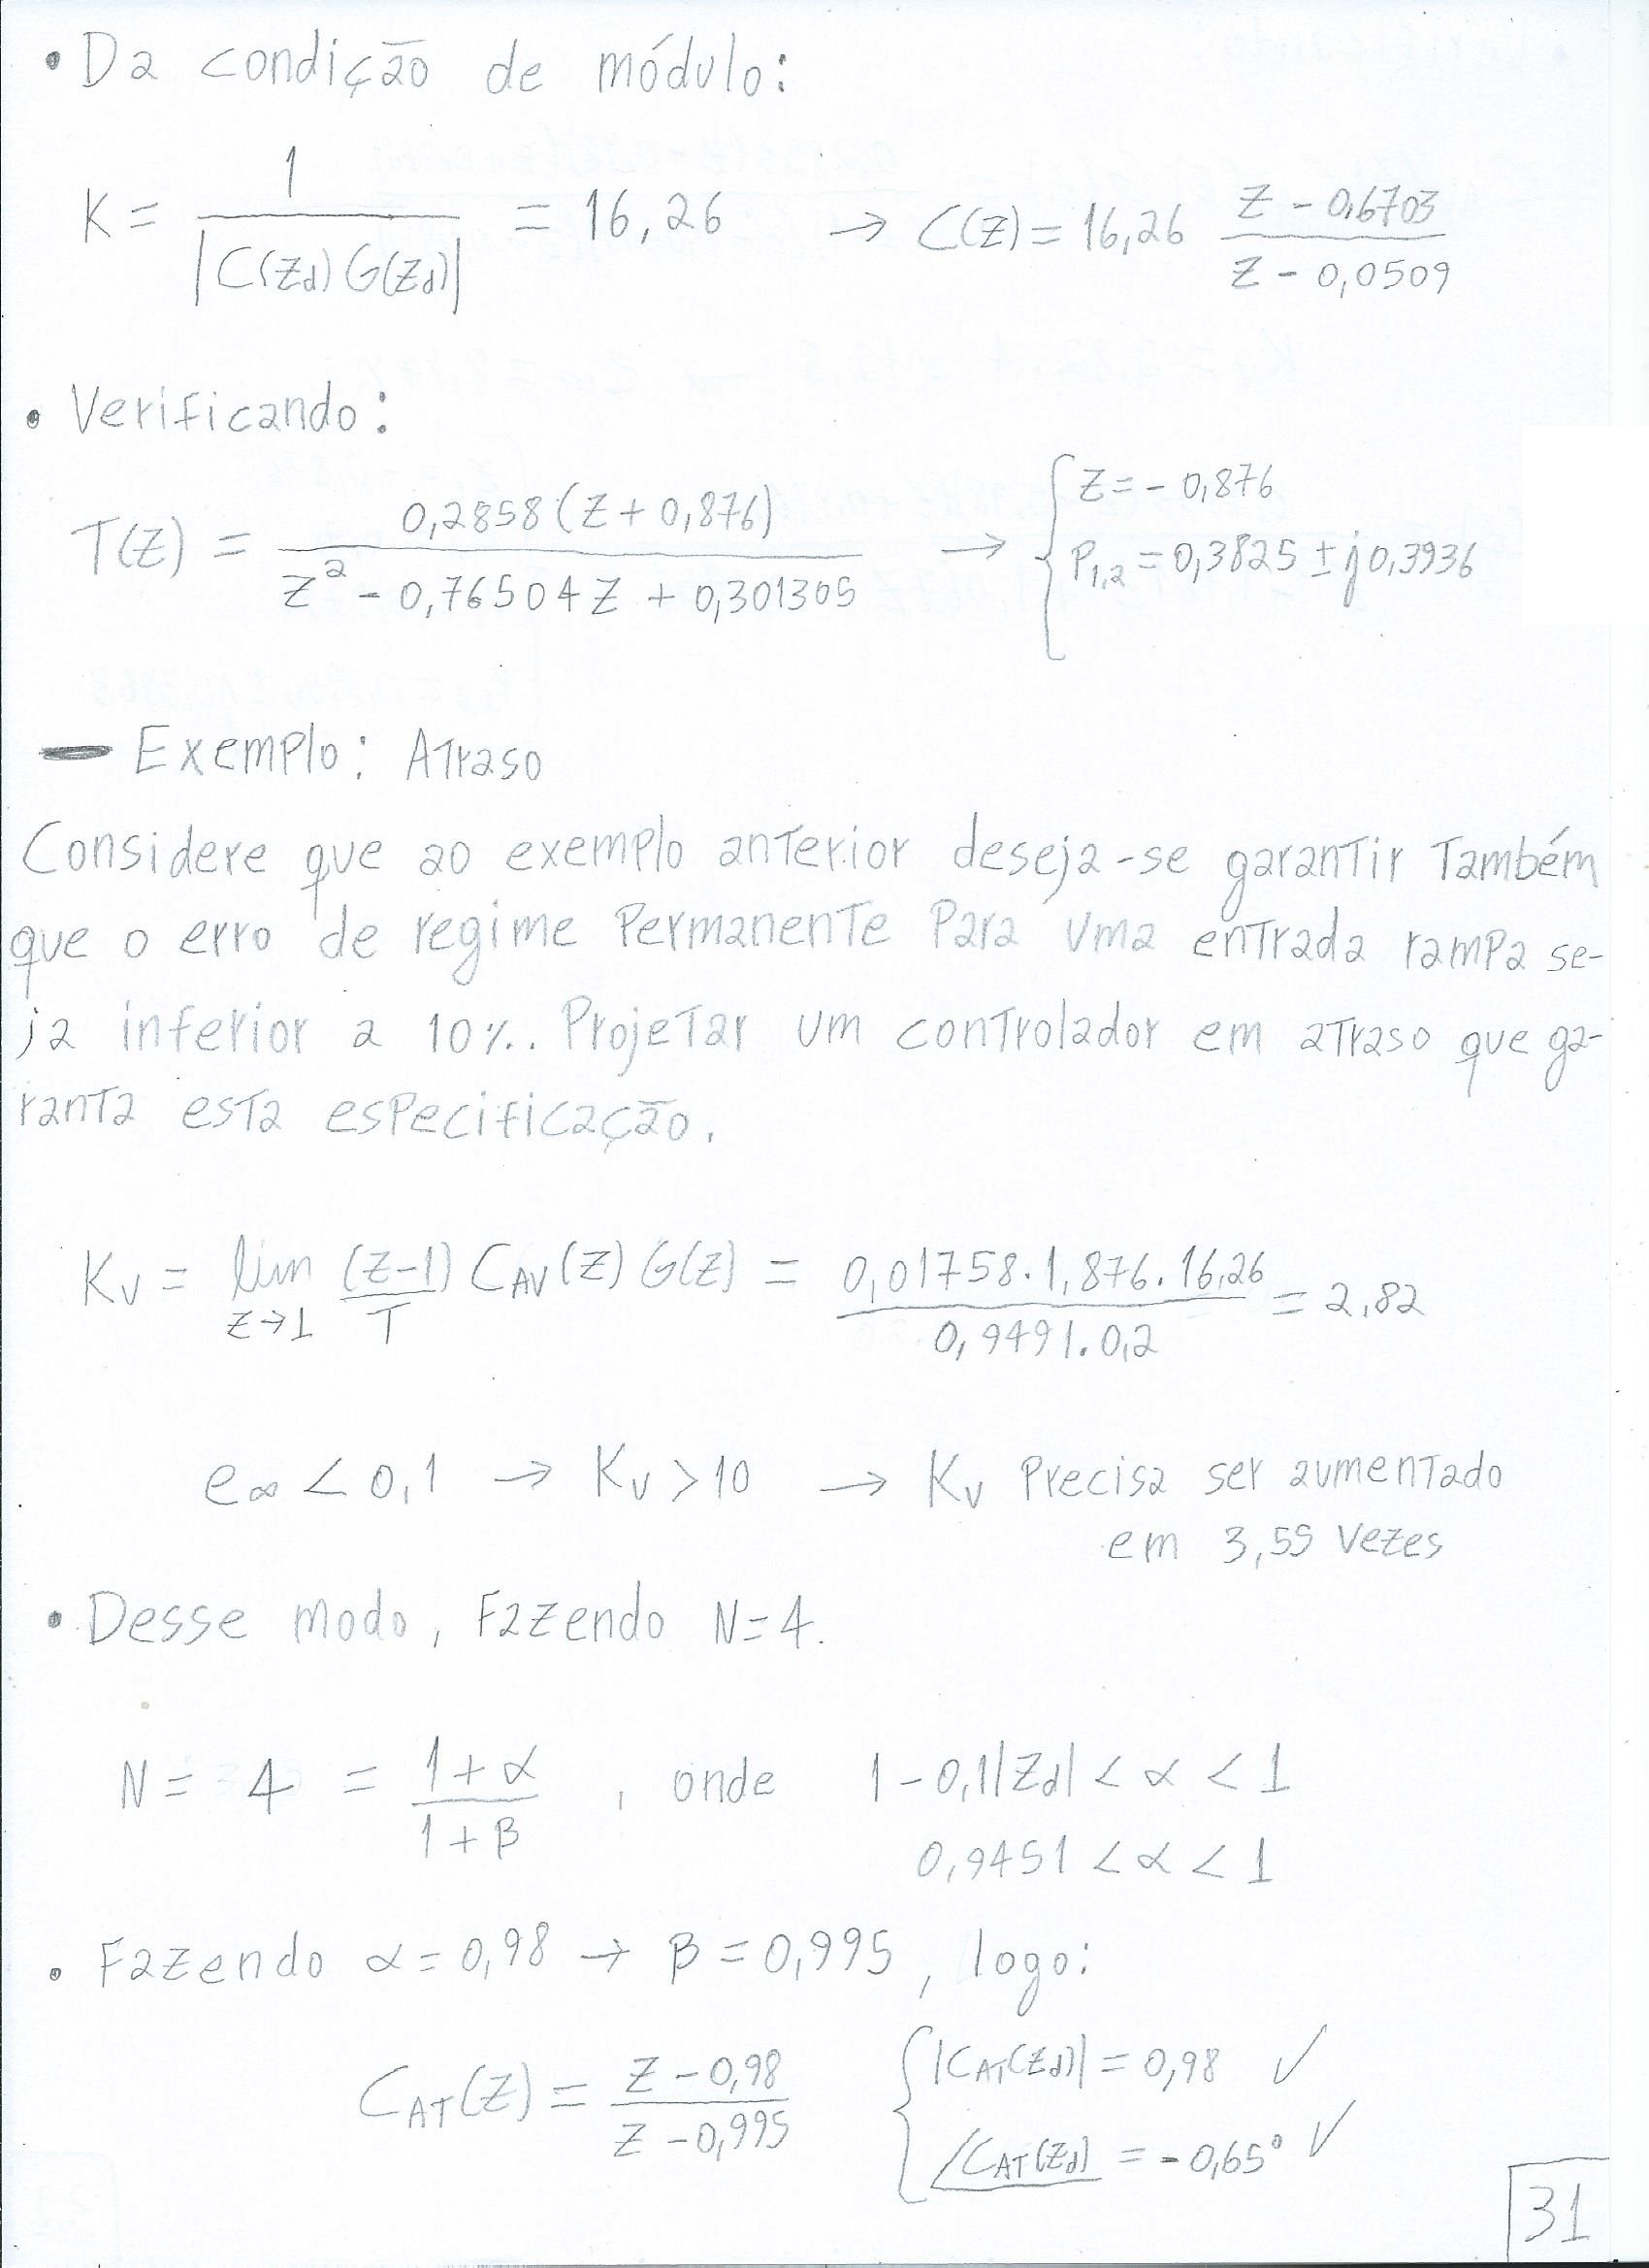 • Da condição de módulo:
K = 1 / |C(Zd) G(Zd)| = 16,26 → C(Z) = 16,26 (Z - 0,6703) / (Z - 0,0509)
• Verificando:
T(Z) = 0,2858 (Z + 0,876) / (Z² - 0,76504 Z + 0,301305) → { Z = - 0,876
P1,2 = 0,3825 ± j 0,3936
- Exemplo: Atraso
Considere que ao exemplo anterior deseja-se garantir também
que o erro de regime Permanente Para uma entrada rampa se-
ja inferior a 10%. Projetar um controlador em atraso que ga-
ranta esta especificação.
Kv = lim Z→1 (Z-1)/T CAV(Z) G(Z) = 0,01758 . 1,876 . 16,26 / 0,9491 . 0,2 = 2,82
e∞ < 0,1 → Kv > 10 → Kv Precisa ser aumentado
em 3,55 vezes
• Desse modo, Fazendo N=4.
N = 4 = (1 + α) / (1 + β) , onde 1 - 0,1|Zd| < α < 1
0,9451 < α < 1
• Fazendo α = 0,98 → β = 0,995, logo:
CAT(Z) = (Z - 0,98) / (Z - 0,995) { |CAT(Zd)| = 0,98 ✓
∠CAT(Zd) = - 0,65° ✓
31